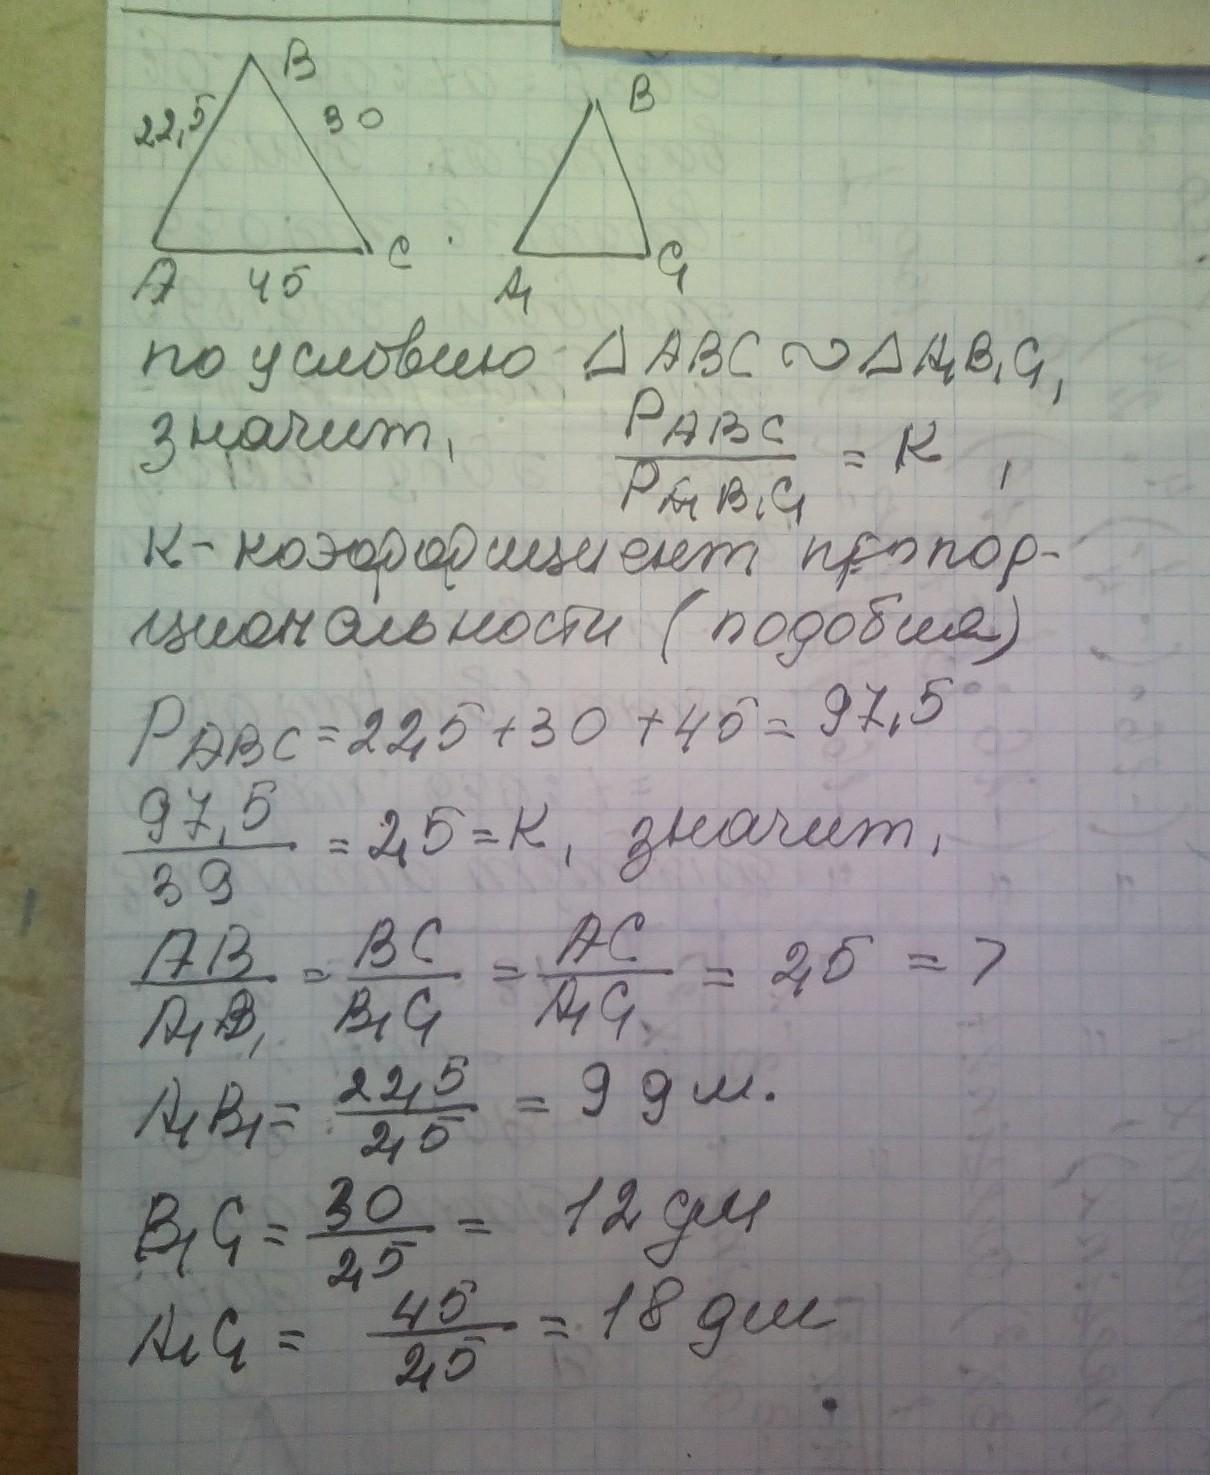 B
22,5
30
A
45
C
B
A₁
C₁
по условию ΔABC ∾ ΔA₁B₁C₁,
значит, P_ABC / P_A₁B₁C₁ = К ,
К - коэффициент пропор-
циональности (подобия)
P_ABC = 22,5 + 30 + 45 = 97,5
97,5 / 39 = 2,5 = К, значит,
AB / A₁B₁ = BC / B₁C₁ = AC / A₁C₁ = 2,5 =>
A₁B₁ = 22,5 / 2,5 = 9 дм.
B₁C₁ = 30 / 2,5 = 12 дм
A₁C₁ = 45 / 2,5 = 18 дм